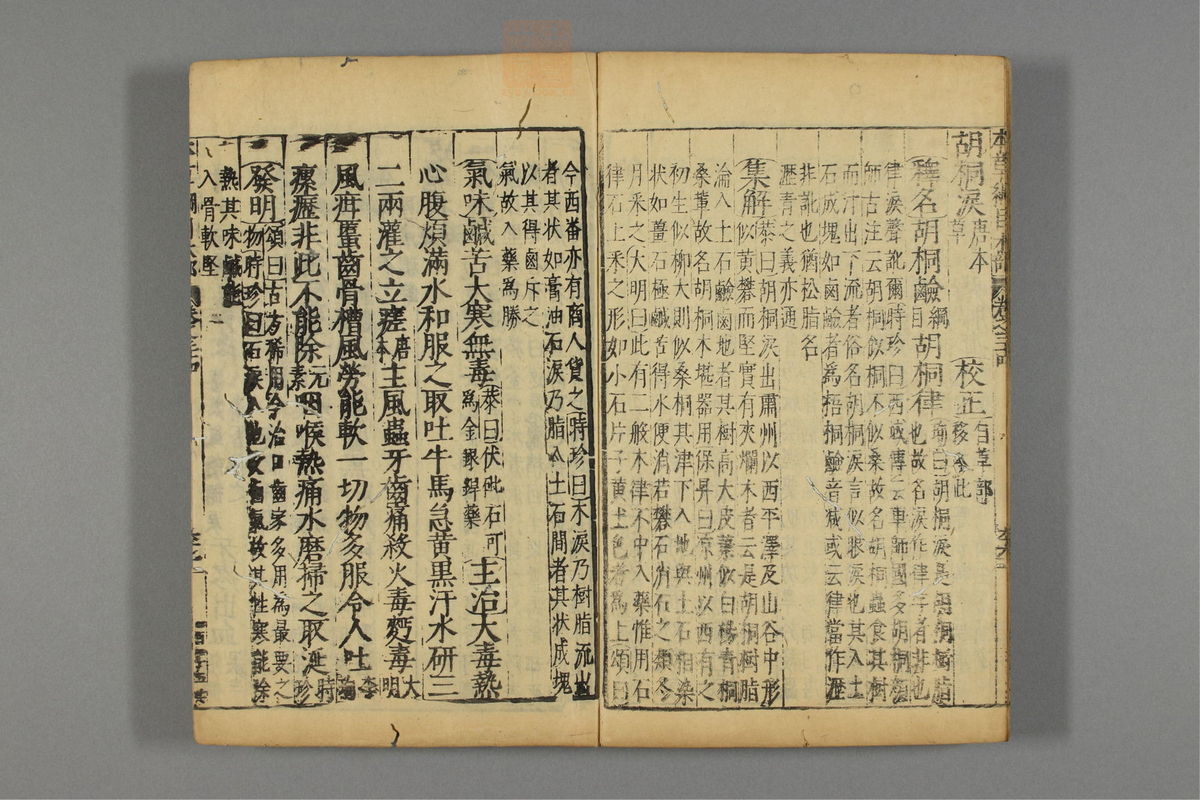 胡桐淚唐本草 校正自草部移入此
釋名胡桐鹼綱目胡桐律珣曰胡桐淚是胡桐樹脂也故名淚作律字者非也
律淚聲訛爾時珍曰西域傳云車師國多胡桐顏
師古注云胡桐似桐不似桑故名胡桐蟲食其樹
而汁出下流者俗名胡桐淚言似眼淚也其入土
石成塊如鹵鹼者為梧桐鹼音減或云律當作瀝
非訛也猶松脂名
瀝青之義亦通
集解恭曰胡桐淚出肅州以西平澤及山谷中形似黃礬而堅實有夾爛木者云是胡桐樹脂
淪入土石鹼鹵地者其樹高大皮葉似白楊青桐
桑輩故名胡桐木堪器用保昇曰涼州以西有之
初生似柳大則似桑桐其津下入地與土石相染
狀如薑石極鹹苦得水便消若礬石消石之類冬
月采之大明曰此有二般木律不中入藥惟用石
律石上采之形如小石片子黃土色者為上頌曰
今西番亦有商人貨之時珍曰木淚乃樹脂流出
者其狀如膏油石淚乃脂入土石間者其狀成塊
以其得鹵斥之
氣故入藥為勝
氣味鹹苦大寒無毒恭曰伏砒石可為金銀銲藥主治大毒熱
心腹煩滿水和服之取吐牛馬急黃黑汗水研三
二兩灌之立瘥唐本主風蟲牙齒痛殺火毒麪毒大明
風疳䘌齒骨槽風勞能軟一切物多服令人吐李珣
瘰癧非此不能除元素咽喉熱痛水磨掃之取涎時珍
發明頌曰古方稀用今治口齒家多用為最要之物時珍曰石淚入地受鹵氣故其性寒能除
熱其味鹹能
入骨軟堅